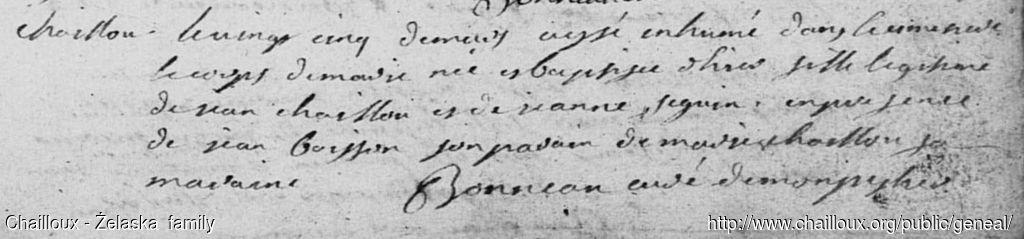 Chaillou - le vingt cinq de mars a esté inhumé dans le cimetiere
le corps de marie née et baptisée d'hier fille legitime
de jean chaillou et de jeanne seguin, en presence
de jean boisson son parain de marie chaillou sa
maraine Bonneau curé de
Chailloux - Żelaska family
http://www.chailloux.org/public/geneal/